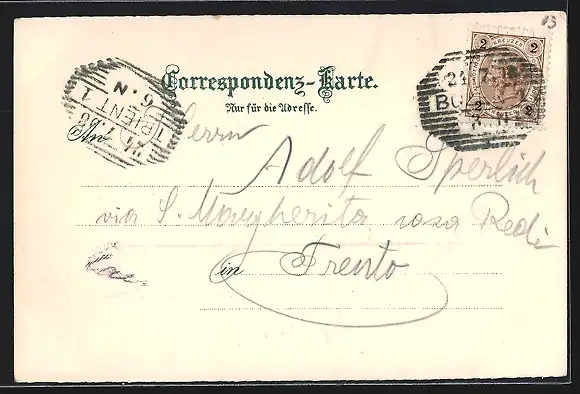 13
Correspondenz-Karte.
Nur für die Adresse.
2 KREUZER 2
2 2
24 7
BO
TRIENT 1
6. N
24 7 98
An Herrn
Adolf Sperlich
via S. Margherita, casa Redi
in Trento